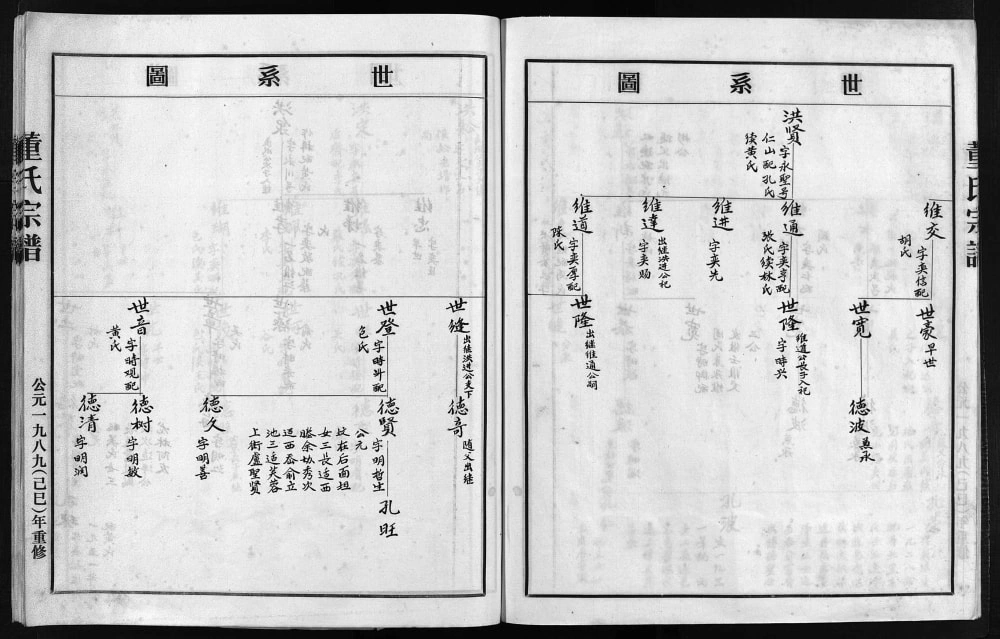 世系圖
董氏宗譜
洪贤
字永聖号
仁山配孔氏
续黄氏
维交
字奕信配
胡氏
维通
字奕亨配
张氏续林氏
维进
字奕先
维達
出继洪进公祀
字奕賜
维道
字奕厚配
陈氏
世豪
早世
世宽
世隆
维道公长子入祀
字時兴
世隆
出继维通公嗣
德波
世系圖
世缝
出继洪进公支下
世登
字時斗配
包氏
世音
字時观配
黄氏
德奇
随父出继
德賢
字明哲生
公元
坟在后面坦
女三長适西
塍余
秀次
适西岙俞立
池三适芙蓉
上街盧聖賢
孔旺
德久
字明善
德树
字明敏
德清
字明润
董氏宗譜
公元一九八九（己巳）年重修